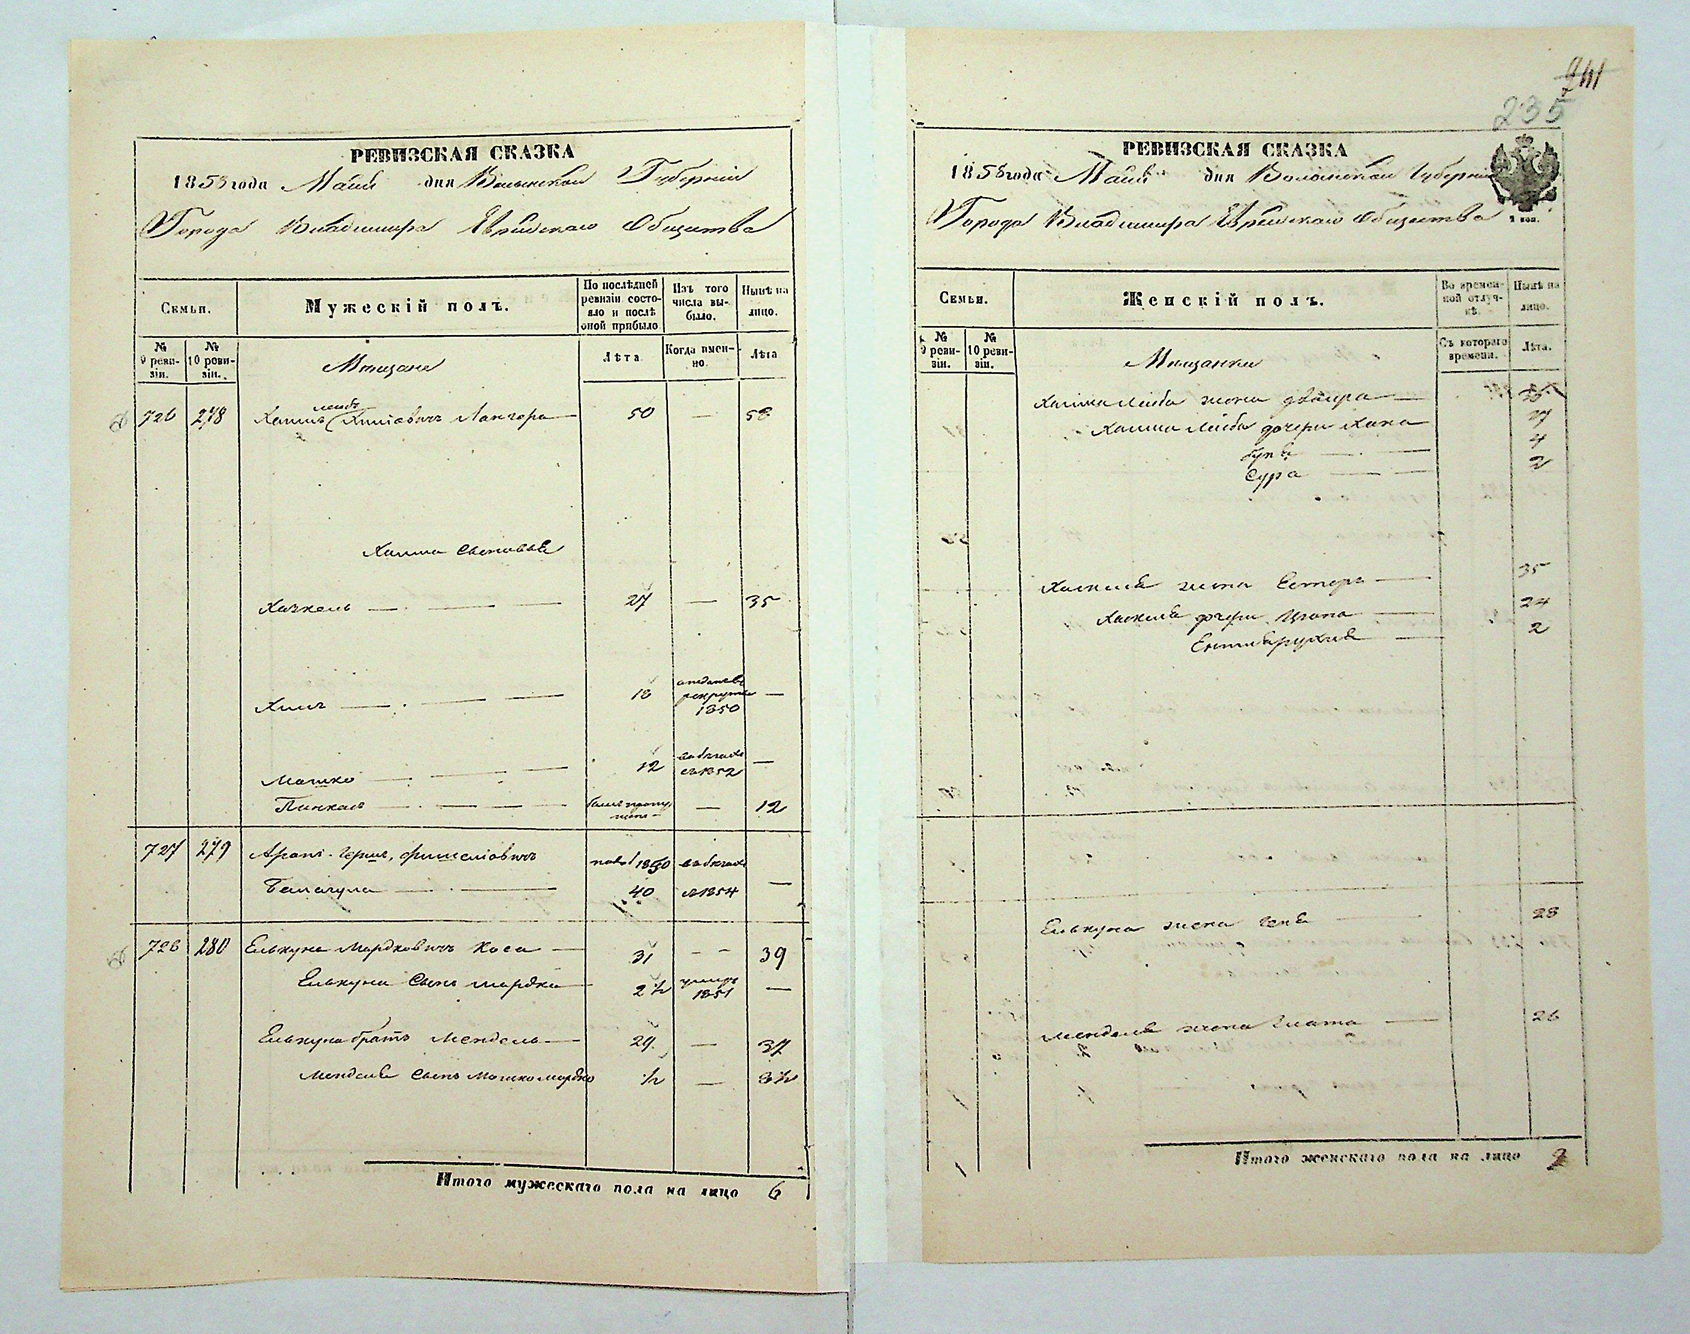 РЕВИЗСКАЯ СКАЗКА
1858 года Майя дня Волынской Губерніи
Города Владимира Еврейскаго Общества
Семьи.
Мужескій полъ.
По послѣдней ревизіи состояло и послѣ оной прибыло
Изъ того числа выбыло.
Нынѣ на лицо.
№ 9 ревизіи.
№ 10 ревизіи.
Мѣщане
Лѣта
Когда именно.
Лѣта
лейб
726 278 Хаимъ Хаимовичъ Лангора — 50 — 58
Хаима сыновья
Хачкель — 27 — 35
Хаимъ — 18 отданъ въ рекруты 1850 —
Мошко — 12 въ бѣгахъ съ 1852 —
Пинкасъ — былъ пропущенъ — 12
727 279 Аронъ-Герш, Фишелiовичъ 1850 въ бѣгахъ
— 40 съ 1854 —
728 280 Елькуна Мордковичъ Коса — 31 — 39
Елькуна Сынъ Мордко — 2½ умеръ 1851 —
Елькуна братъ Мендель — 29 — 37
Менделя Сынъ Мошко Мордко ½ — 8½
Итого мужескаго пола на лицо 6
241
235
РЕВИЗСКАЯ СКАЗКА
1858 года Майя дня Волынской Губерніи
1 коп.
Города Владимира Еврейскаго Общества
Семьи.
Женскій полъ.
Во временной отлучкѣ.
Нынѣ на лицо.
№ 9 ревизіи.
№ 10 ревизіи.
Мѣщанки
Съ котораго времени.
Лѣта.
Хаима Лейба жена Двойра —
Хаима Лейба дочери Хана
4
Сура — 2
Хаскеля жена Естеръ — 35
Хаскеля дочери — 24
— 2
Елькуна жена Геня — 28
Менделя жена Злата — 26
Итого женскаго пола на лицо 9